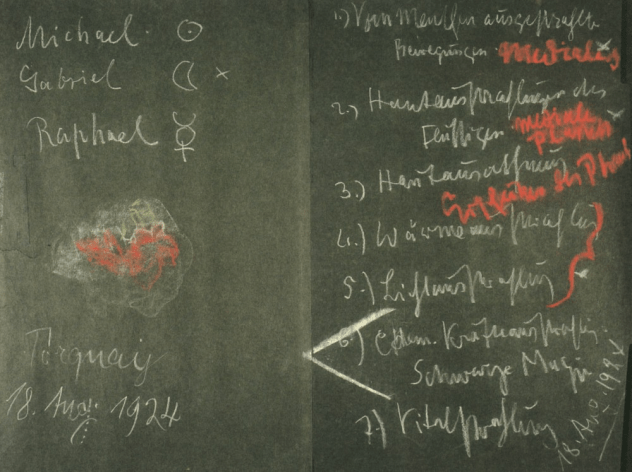 Michael. ☉
Gabriel ☾ ×
Raphael ☿
Torquay
18. Aug. 1924
1.) Vom Menschen ausgestrahlte
Bewegungen.
2.) Hautausstrahlungen des
Flüssigen.
3.) Hautausatmung
4.) Wärmeausstrahlung
5.) Lichtausstrahlung
6.) Chem. Kraftausstrahlg.
Schwarze Magie
7.) Vitalstrahlung
18. Aug. 1924